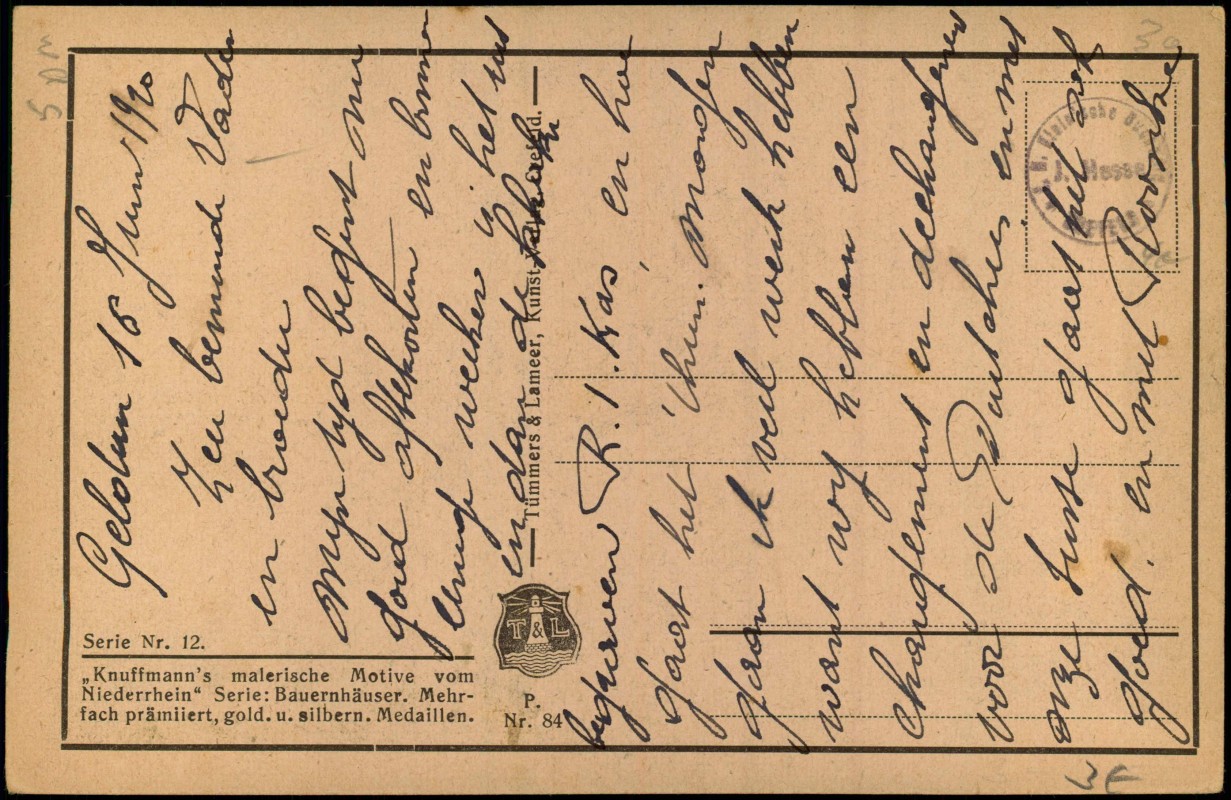 Geldern 18 Juni 1920
Zeer beminde Vader
en broeder
Myn tyd begint nu
goed aftekorten en binnen
eenige weken is het uit
en dan de
begraven R. I. Kas en hoe
gaat het thuis. Morgen
gaan ik veel werk hebben
want wy hebben een
changement en dechanfement
voor de Duitschers en met
onze Jusse gaat het ook
goed. en met Rooske
Serie Nr. 12.
„Knuffmann's malerische Motive vom
Niederrhein“ Serie: Bauernhäuser. Mehr-
fach prämiiert, gold. u. silbern. Medaillen.
T & L
P.
Nr. 84
Tümmers & Lameer, Kunst-Verlag, Crefeld.
5 DM
30
WE